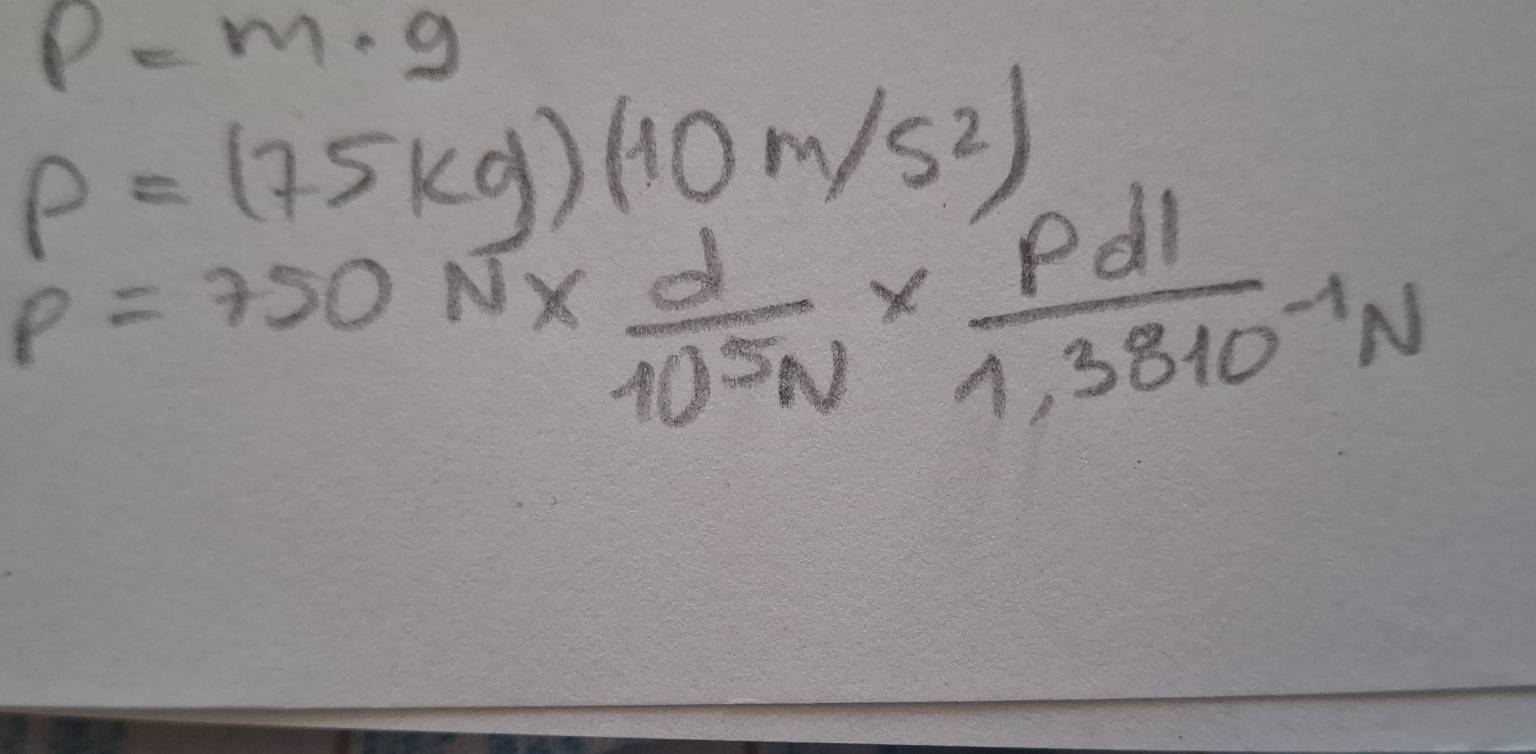 P = m · g
P = (75kg)(10 m/s²)
P = 750 N x d/10⁵N x Pdl/1,3810⁻¹N